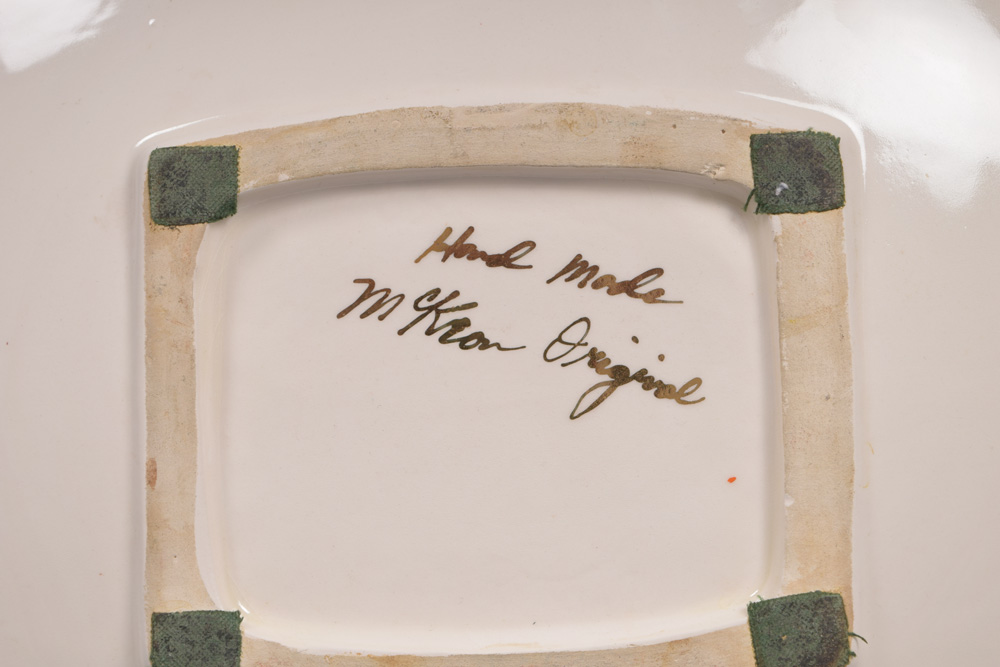 Hand Made
McKeon Original